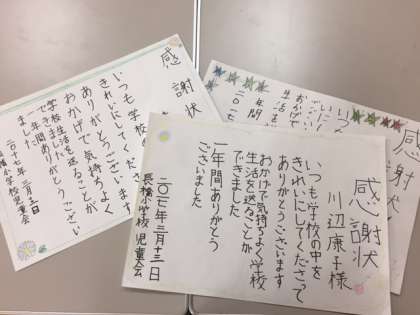 感謝状
川辺康子様
いつも学校の中を
きれいにしてくださって
ありがとうございます
おかげで気持ちよく学校
生活を送ることが
できました
一年間ありがとう
ございました
二〇一七年三月十三日
長橋小学校 児童会
感謝状
いつも学校の
きれいにしてくださ
ありがとうございます
おかげで気持ちよく
学校生活を送ることが
できました
一年間ありがとうござい
二〇十七年三月
小学校児童会
感謝状
いつ
いに
おかげ
生活を
年間
二〇一